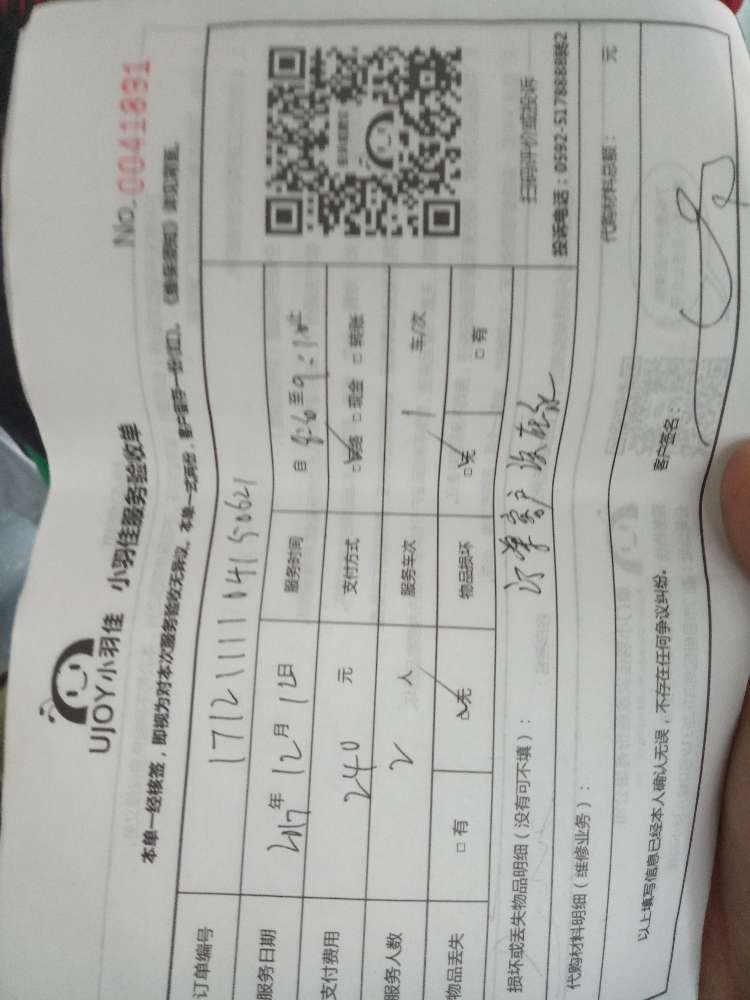 No. 0041891
UJOY小羽佳 小羽佳服务验收单
本单一经核签，即视为对本次服务验收无异议。本单一式两份，客户留存一份(红)。《维保须知》详见背面。
订单编号 171211111041150621
服务日期 2017年12月12日 服务时间 自 8:6 至 9:10止
支付费用 240 元 支付方式 □网络 □现金 □转账
服务人数 2 人 服务车次 1 车/次
物品丢失 □有 □无 物品损坏 □无 □有
扫码评价或投诉
投诉电话：0592-5178888转2
损坏或丢失物品明细（没有可不填）：
代购材料明细（维修业务）： 代购材料总额： 元
以上填写信息已经本人确认无误，不存在任何争议纠纷。 客户签名：